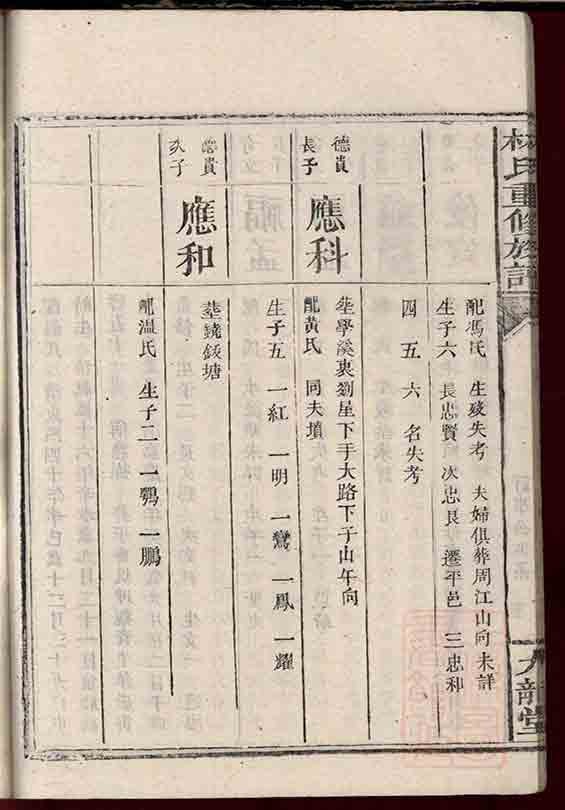 林氏重修族譜
九龍堂
配馮氏 生歿失考 夫婦俱葬周江山向未詳
生子六 長忠賢 次忠良 遷平邑 三忠和
四 五 六 名失考
德貴
長子
應科
葬學溪裏劉屋下手大路下子山午向
配黃氏 同夫墳
生子五 一紅 一明 一鸞 一鳳 一耀
德貴
次子
應和
葬鐃鈸塘
配溫氏 生子二 一鶚 一鵬